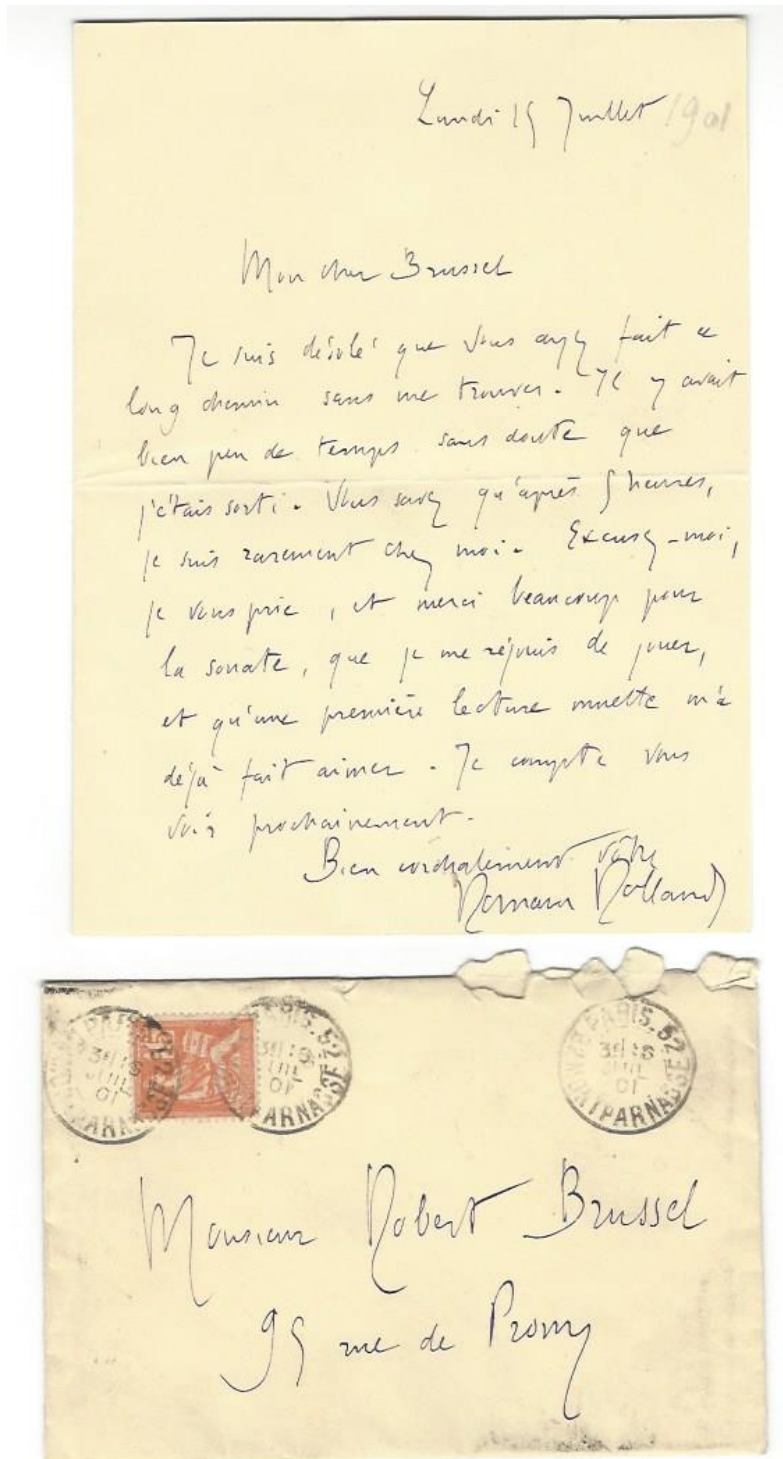 Lundi 15 Juillet 1901
Mon cher Brussel
Je suis désolé que vous ayez fait ce
long chemin sans me trouver. Il y avait
bien peu de temps sans doute que
j'étais sorti. Vous savez qu'après 5 heures,
je suis rarement chez moi. Excusez-moi,
je vous prie, et merci beaucoup pour
la sonate, que je me réjouis de jouer,
et qu'une première lecture muette m'a
déjà fait aimer. Je compte vous
voir prochainement.
Bien cordialement vôtre
Romain Rolland
PARIS. 52
JUIL
01
MONTPARNASSE
PARIS. 52
JUIL
01
PARNASSE
PARIS. 52
JUIL
01
MONTPARNASSE
15
Monsieur Robert Brussel
95 rue de Prony